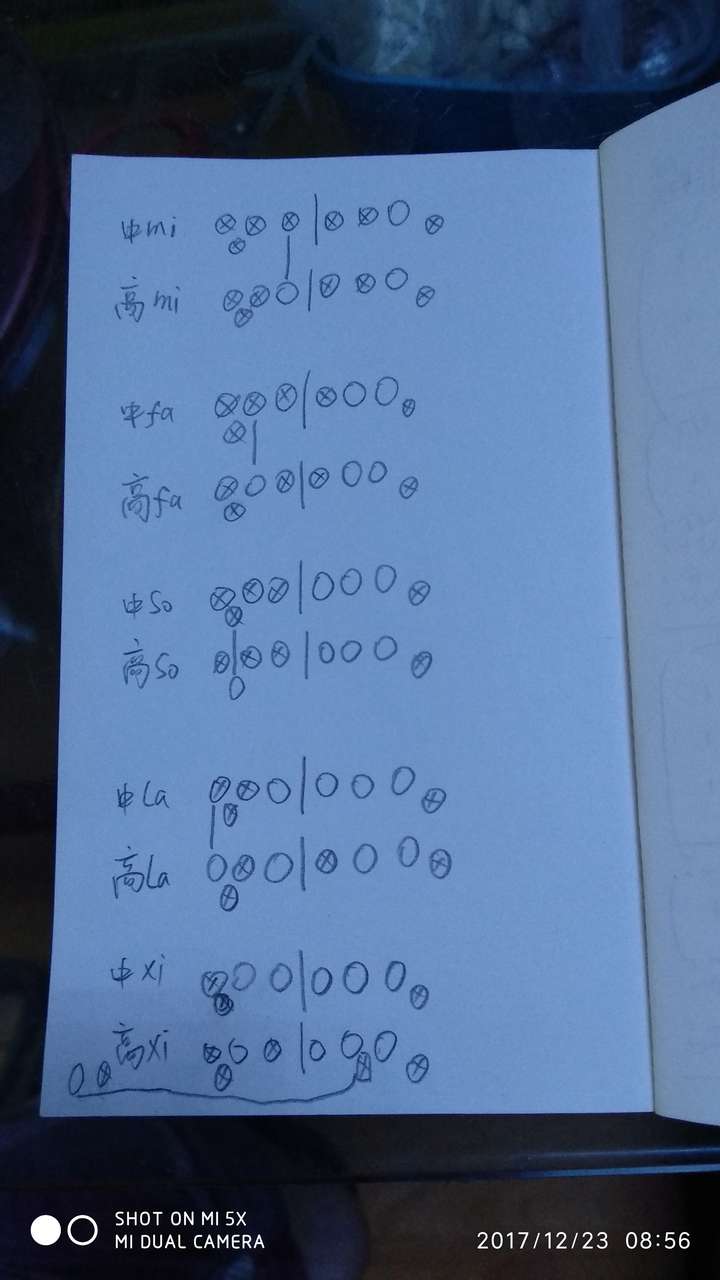 中mi
高mi
中fa
高fa
中So
高So
中La
高La
中xi
高xi
SHOT ON MI 5X
MI DUAL CAMERA
2017/12/23 08:56